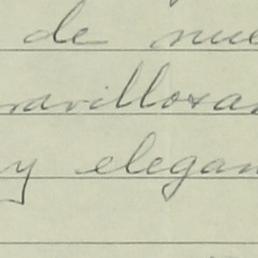 de nue
ravillosa
y elegan